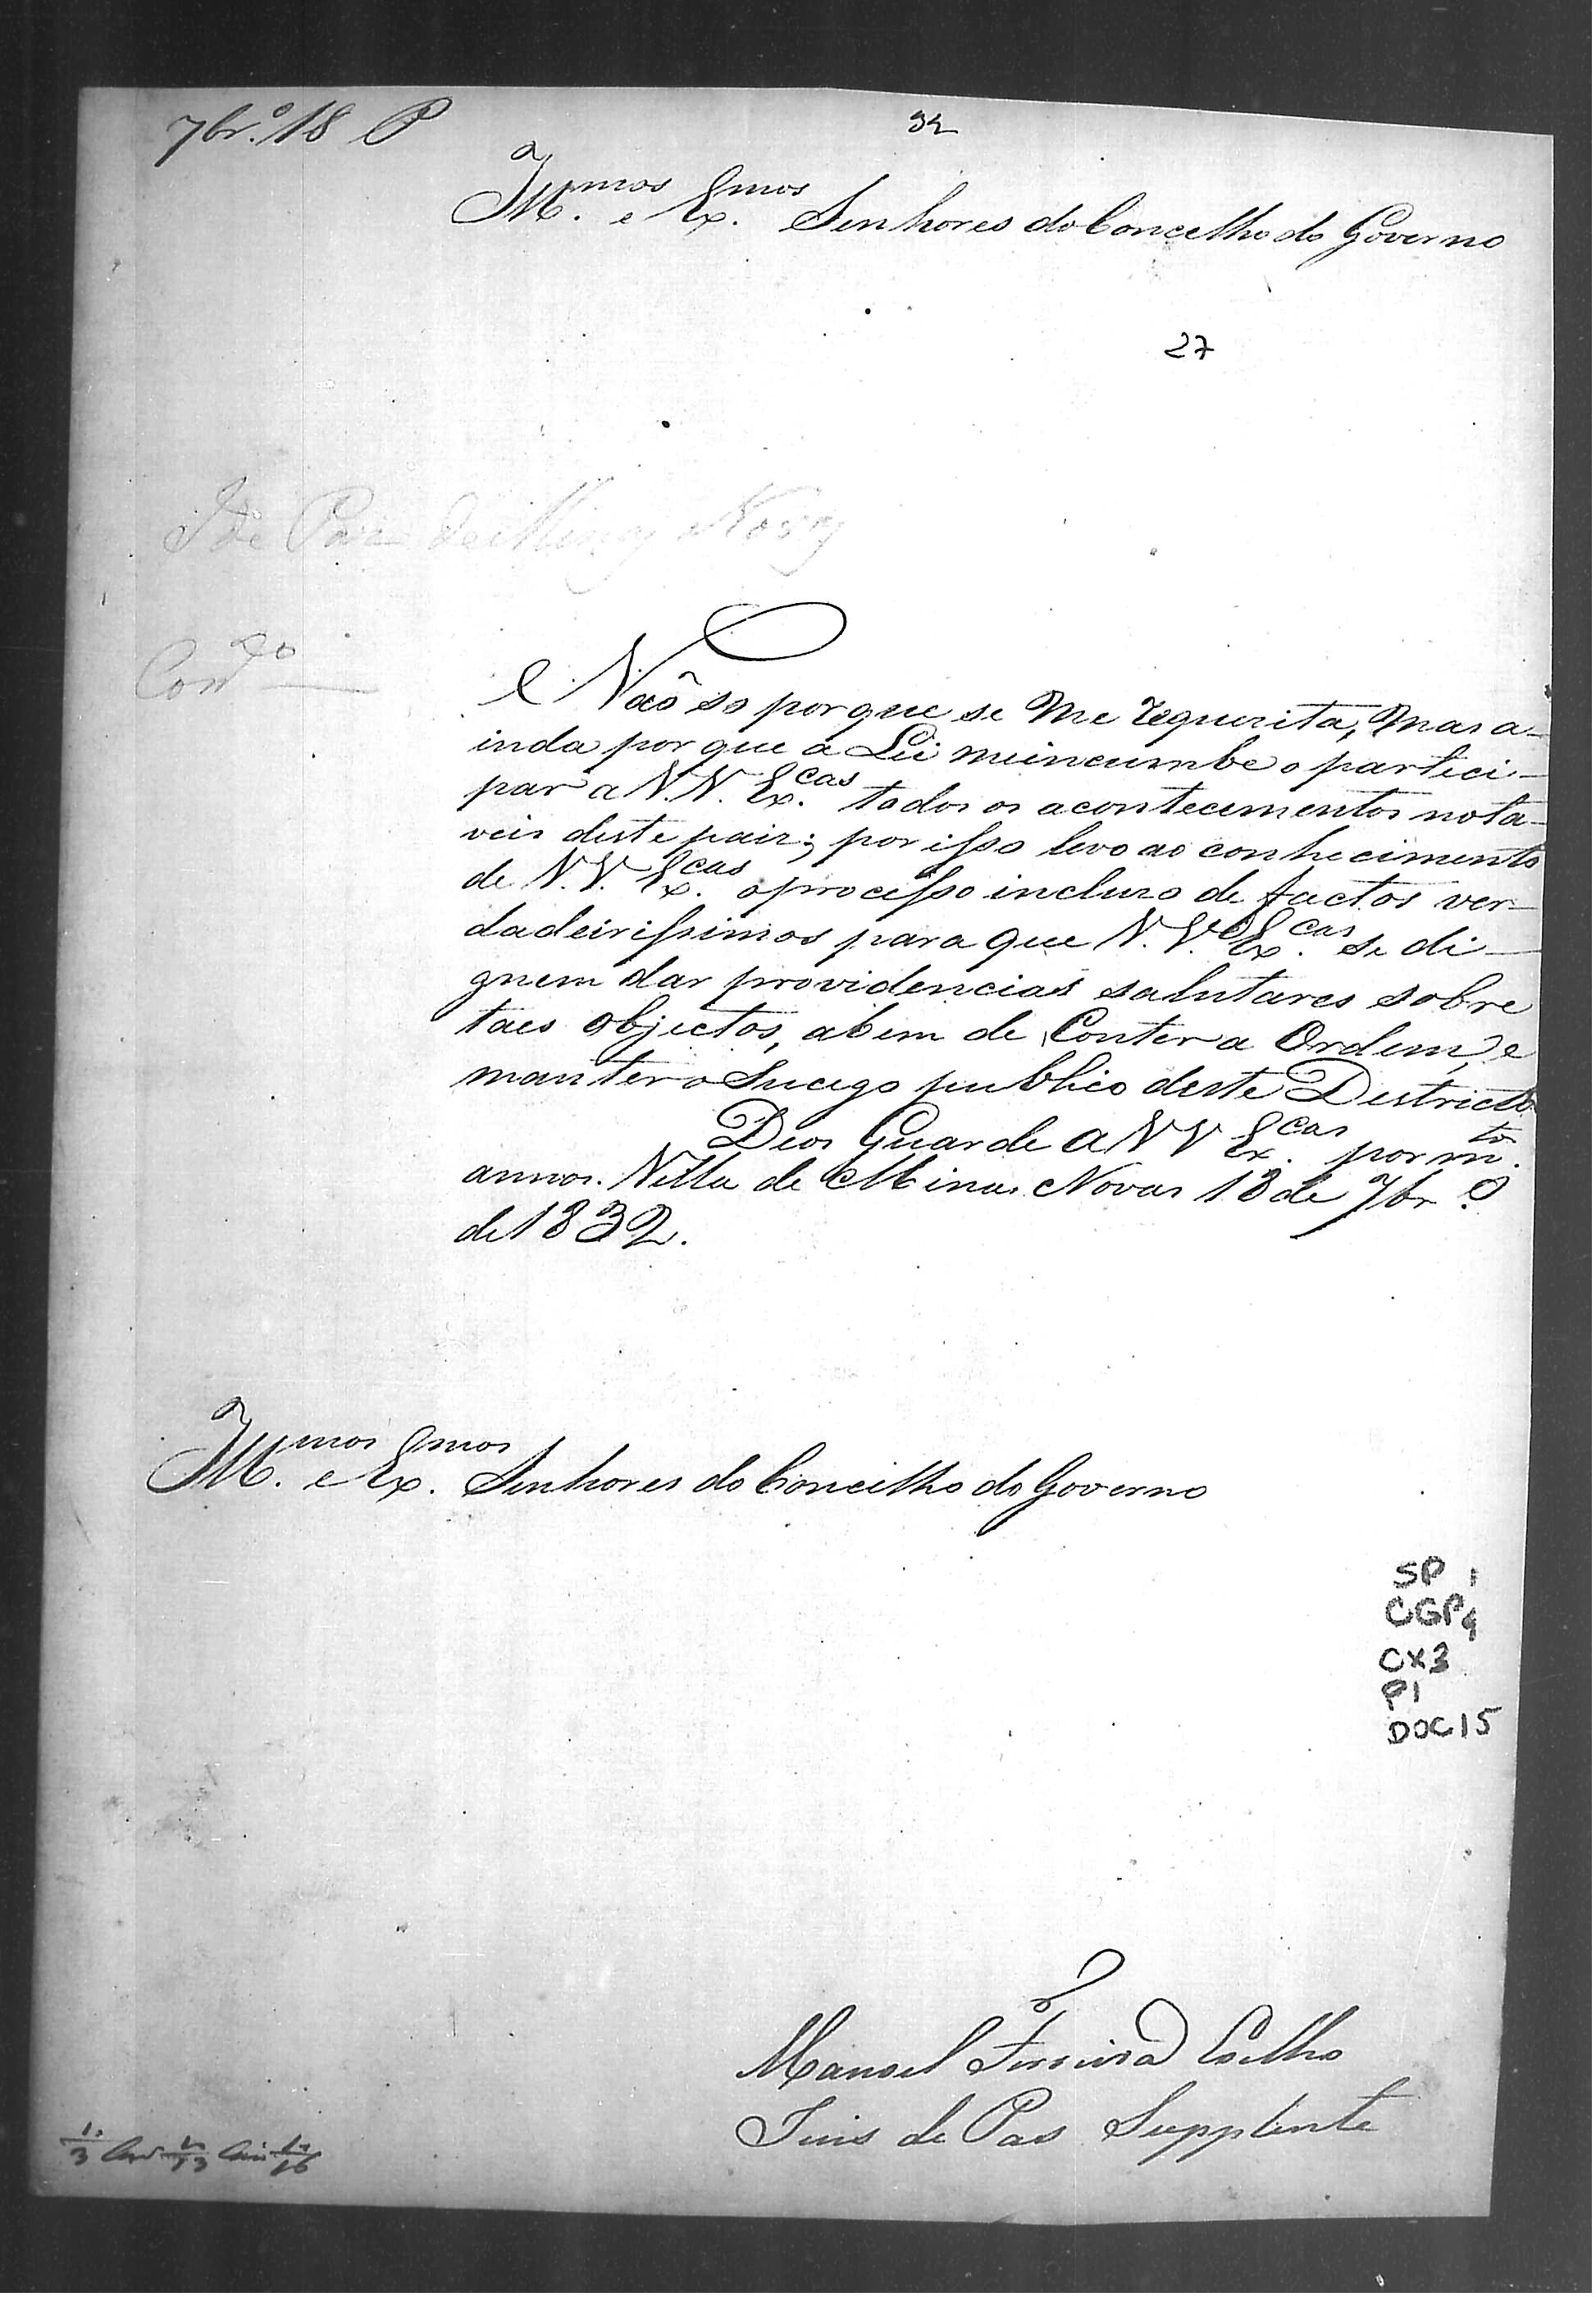 7br.º 18 P
32
Ill.mos e Ex.mos Senhores do Concelho do Governo
27
J de Paz de Minas Novas
Con.do
Naõ so porque se Me requerita, Mas a-
inda por que a Lei meincumbe o partici-
par a V.V. Ex.cas todos os acontecimentos nota-
veis deste paiz; por isso levo ao conhecimento
de V.V. Ex.cas oprocesso incluzo de factos ver-
dadeirissimos para que V.V. Ex.cas se di-
gnem dar providencias salutares sobre
taes objectos, abem de Conter a Ordem, e
manter o Sucego publico deste Districto
Deos Guarde a VV Ex.cas por m.tos
annos. Villa de Minas Novas 18 de 7br.º
de 1832.
Ill.mos e Ex.mos Senhores do Concelho do Governo
SP 1
CGP4
CX3
P1
DOC15
Manoel Ferreira Coelho
Juis de Pas Supplente